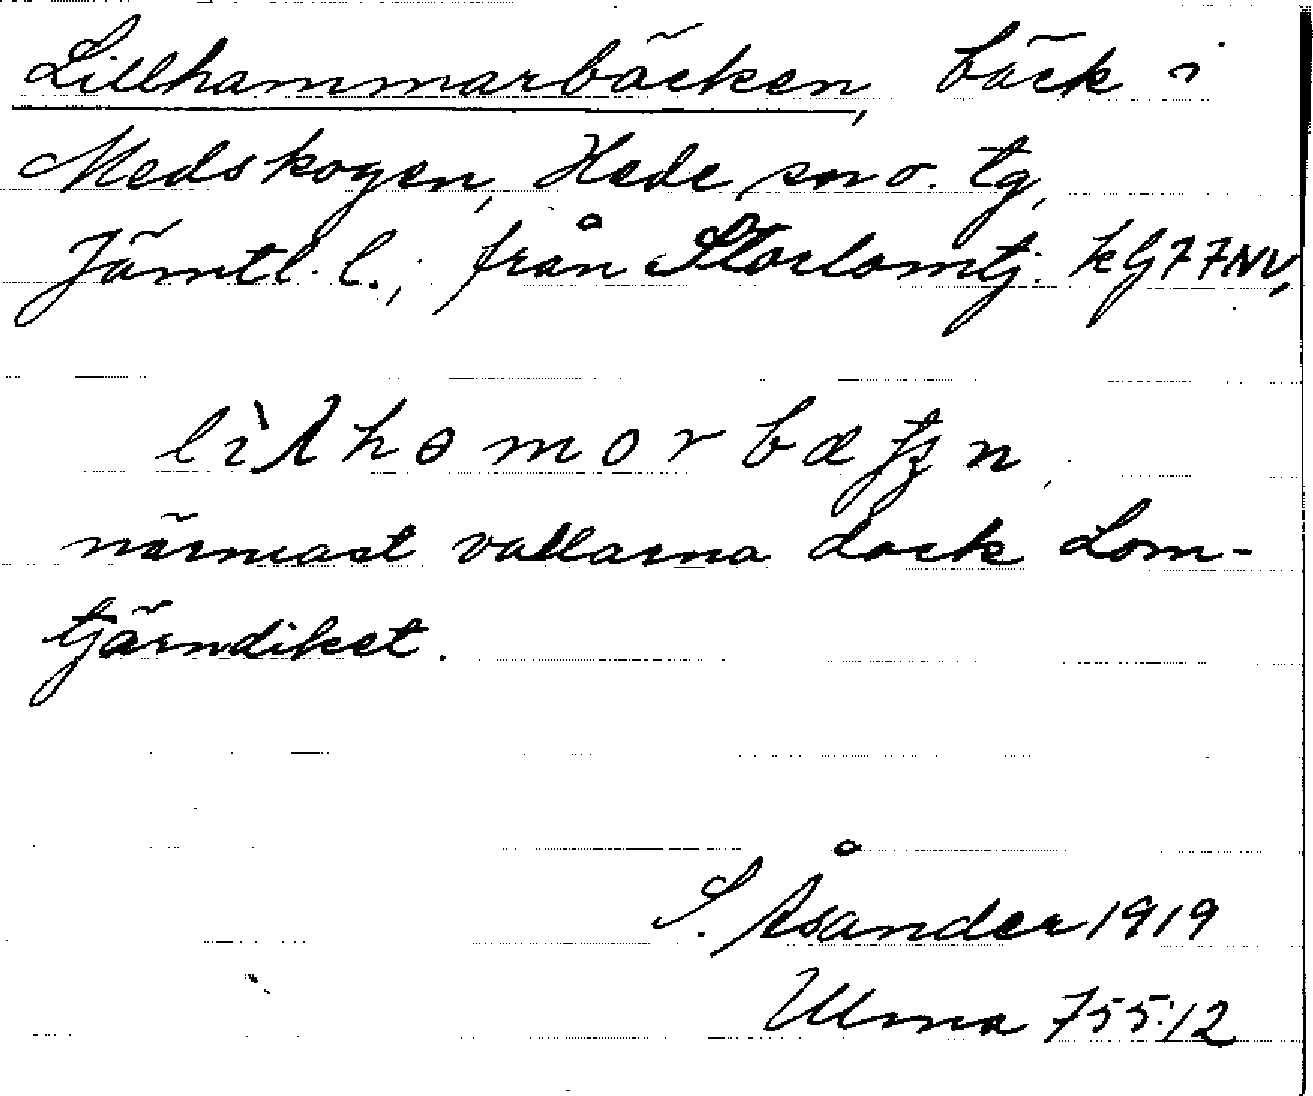 Lillhammarbäcken, bäck i
Medskogen, Hede sn o. tg,
Jämtl. l.; från Storlomtj. kG77NV,
närmast vallarna dock Lom-
tjärndiket.
S. Åsander 1919
Ulma 755:12